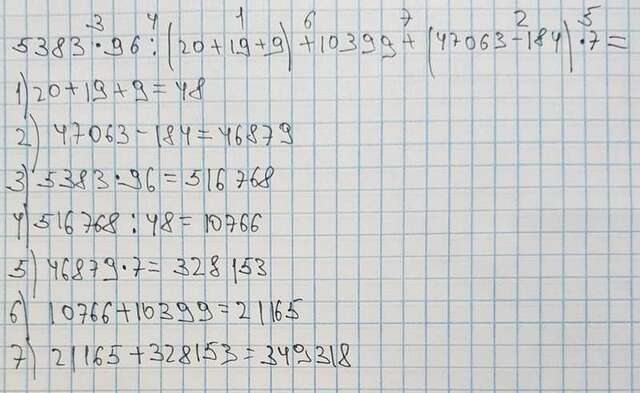 3 4 1 6 7 2 5
5383·96:(20+19+9)+10399+(47063-184)·7=
1) 20+19+9=48
2) 47063-184=46879
3) 5383·96=516768
4) 516768:48=10766
5) 46879·7=328153
6) 10766+10399=21165
7) 21165+328153=349318